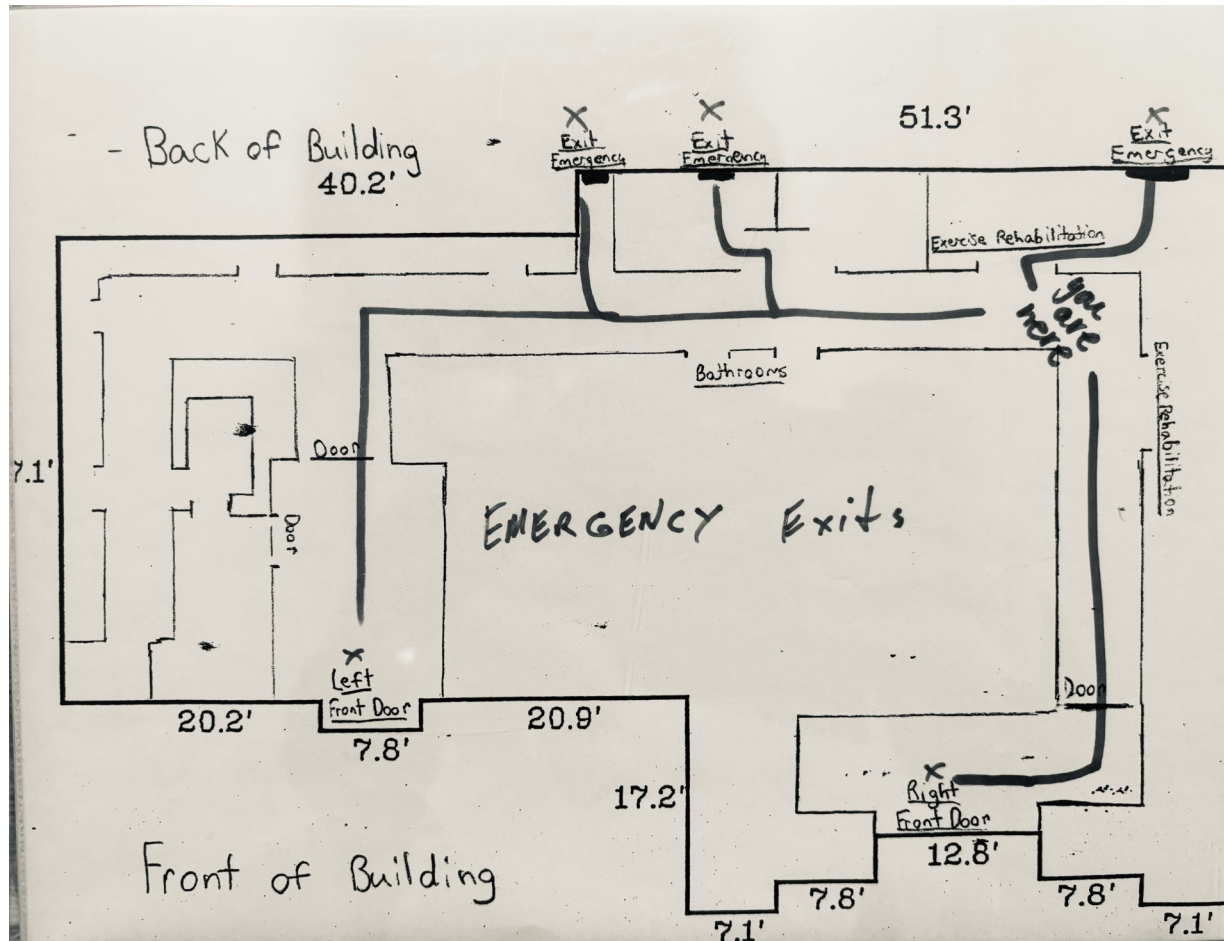 - Back of Building
40.2'
Exit
Emergency
Exit
Emergency
51.3'
Exit
Emergency
Exercise Rehabilitation
you
are
here
Exercise Rehabilitation
Bathrooms
Door
7.1'
Door
EMERGENCY Exits
Left
Front Door
20.2'
7.8'
20.9'
Door
17.2'
Right
Front Door
12.8'
Front of Building
7.8'
7.8'
7.1'
7.1'